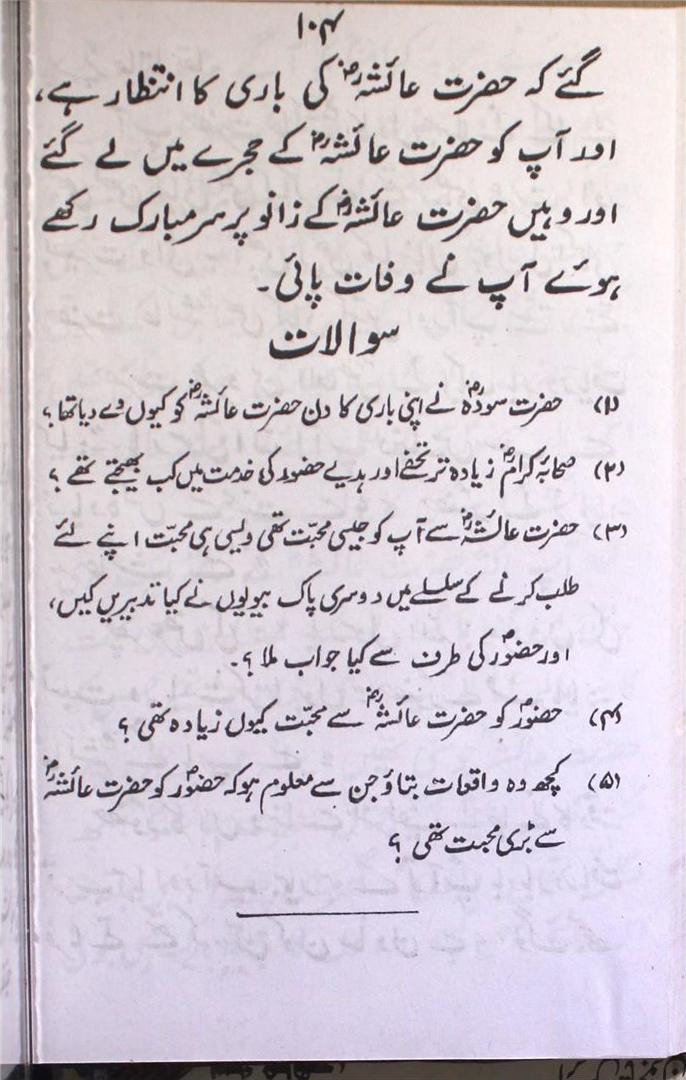 ۱۰۴
گئے کہ حضرت عائشہؓ کی باری کا انتظار ہے،
اور آپ کو حضرت عائشہؓ کے حجرے میں لے گئے
اور وہیں حضرت عائشہؓ کے زانو پر سر مبارک رکھے
ہوئے آپ نے وفات پائی۔
سوالات
(۱) حضرت سودہؓ نے اپنی باری کا دن حضرت عائشہؓ کو کیوں دے دیا تھا؟
(۲) صحابہ کرامؓ زیادہ تر تحفے اور ہدیے حضورؐ کی خدمت میں کب بھیجتے تھے؟
(۳) حضرت عائشہؓ سے آپ کو جیسی محبّت تھی ویسی ہی محبّت اپنے لئے
طلب کرنے کے سلسلے میں دوسری پاک بیویوں نے کیا تدبیریں کیں،
اور حضورؐ کی طرف سے کیا جواب ملا؟۔
(۴) حضورؐ کو حضرت عائشہؓ سے محبّت کیوں زیادہ تھی؟
(۵) کچھ وہ واقعات بتاؤ جن سے معلوم ہو کہ حضورؐ کو حضرت عائشہؓ
سے بڑی محبت تھی؟